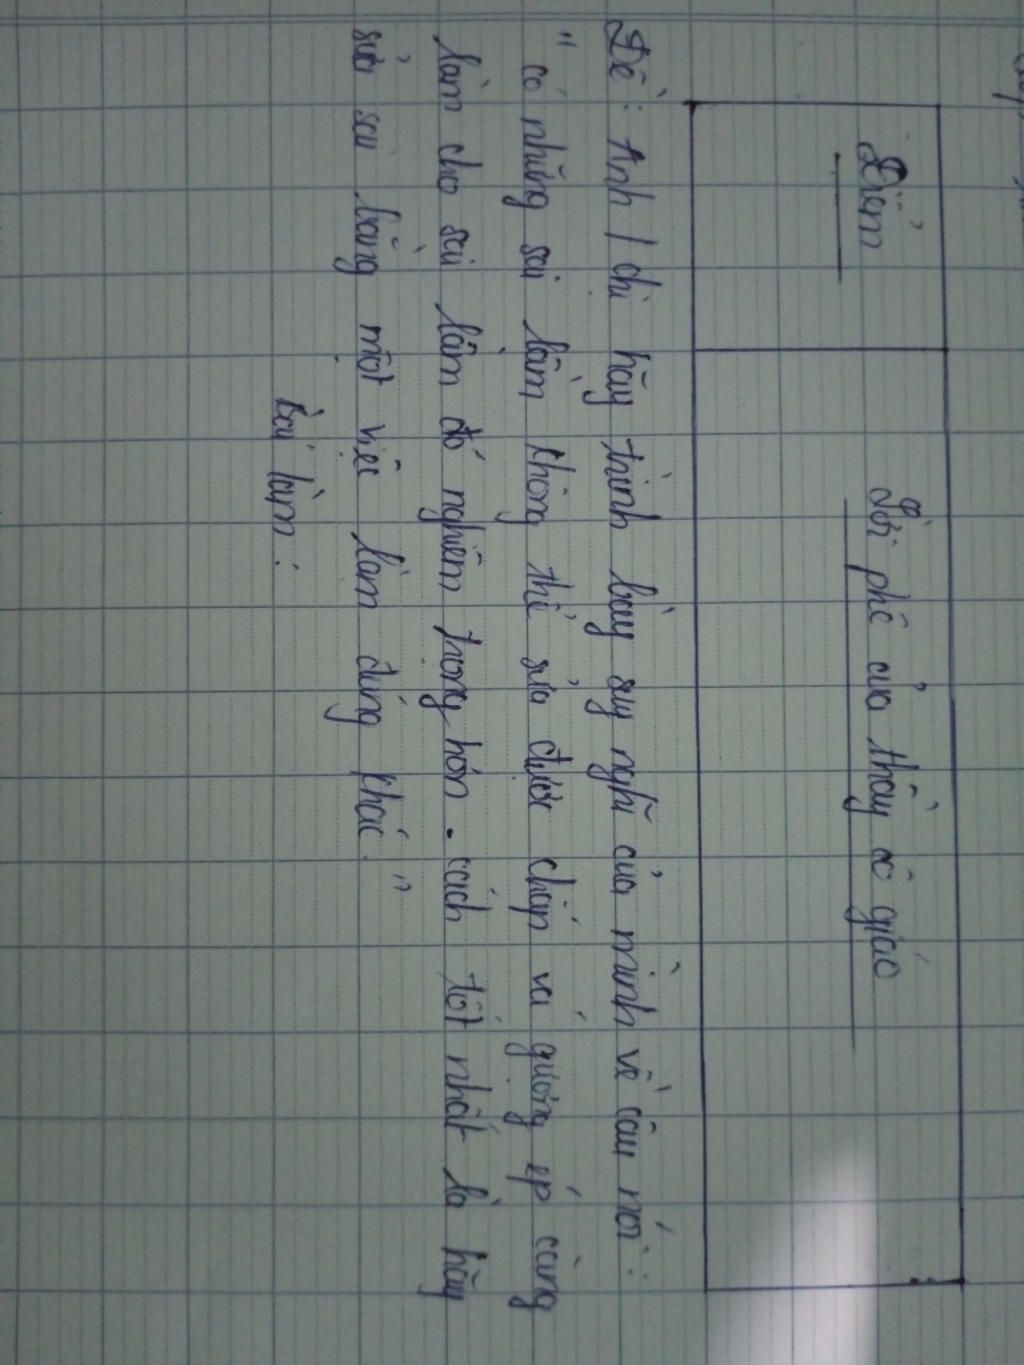 Điểm
Lời phê của thầy cô giáo
Đề : Anh / chị hãy trình bày suy nghĩ của mình về câu nói :
" có những sai lầm không thể sửa được chắp vá gượng ép càng
làm cho sai lầm đó nghiêm trọng hơn . cách tốt nhất là hãy
sửa sai bằng một việc làm đúng khác. "
Bài làm :